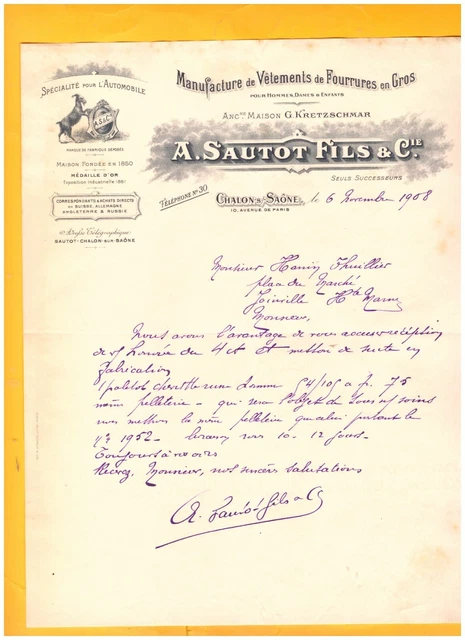 Spécialité pour l'Automobile
A.S&C
Marque de Fabrique Déposée
Maison Fondée en 1850
Médaille d'Or
Exposition Industrielle 1891
Correspondants & Achats Directs
en Suisse, Allemagne
Angleterre & Russie
Adresse Télégraphique:
Sautot-Chalon-sur-Saône
Manufacture de Vêtements de Fourrures en Gros
pour Hommes, Dames & Enfants
Ancne Maison G. Kretzschmar
A. Sautot Fils & Cie
Seuls Successeurs
Téléphone No 30
Chalon-s-Saône, le 6 Novembre 1908
10, Avenue de Paris
Monsieur Henry Thuillier
place du Marché
Joinville Hte Marne
Monsieur,
Nous avons l'avantage de vous accuser réception
de Honorée du 4 ct et mettons de suite en
fabrication
1 paletot chevrette 104/105 à f. 75
même pelleterie - qui sera l'objet de tous nos soins
nous mettrons la même pelleterie que celui portant le
no 1952 - 10-12 jours -
Toujours à vos ordres
Recevez, Monsieur, nos sincères salutations
A. Sautot fils & Cie